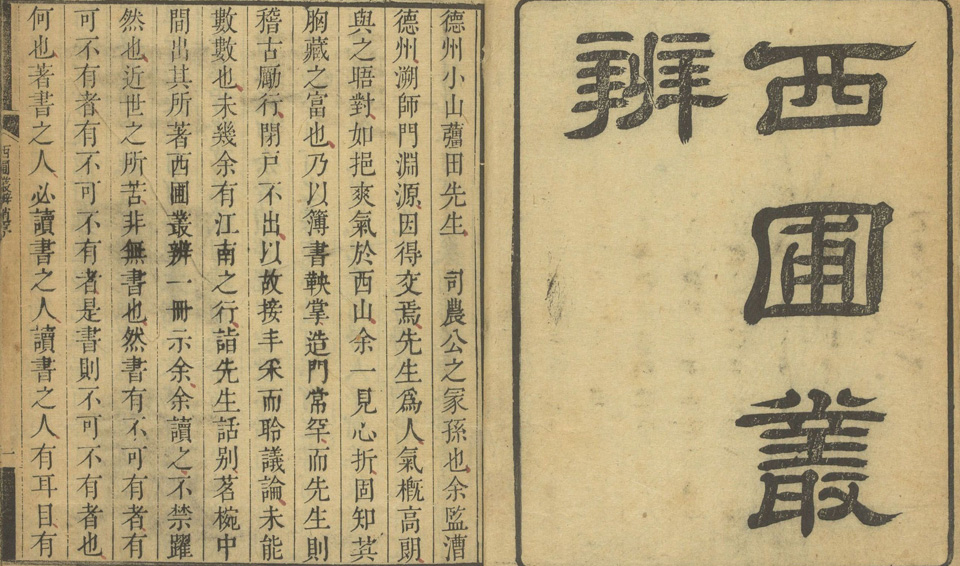 西圃叢
辨
德州小山薑田先生　司農公之冢孫也余監漕
德州溯師門淵源因得交焉先生爲人氣概高朗
與之晤對如挹爽氣於西山余一見心折固知其
胸藏之富也乃以簿書鞅掌造門常罕而先生則
稽古勵行閉戶不出以故接丰采而聆議論未能
數數也未幾余有江南之行詣先生話别茗椀中
間出其所著西圃叢辨一冊示余余讀之不禁躍
然也近世之所苦非無書也然書有不可有者有
可不有者有不可不有者是書則不可不有者也
何也著書之人必讀書之人讀書之人有耳目有
西圃叢辨
一